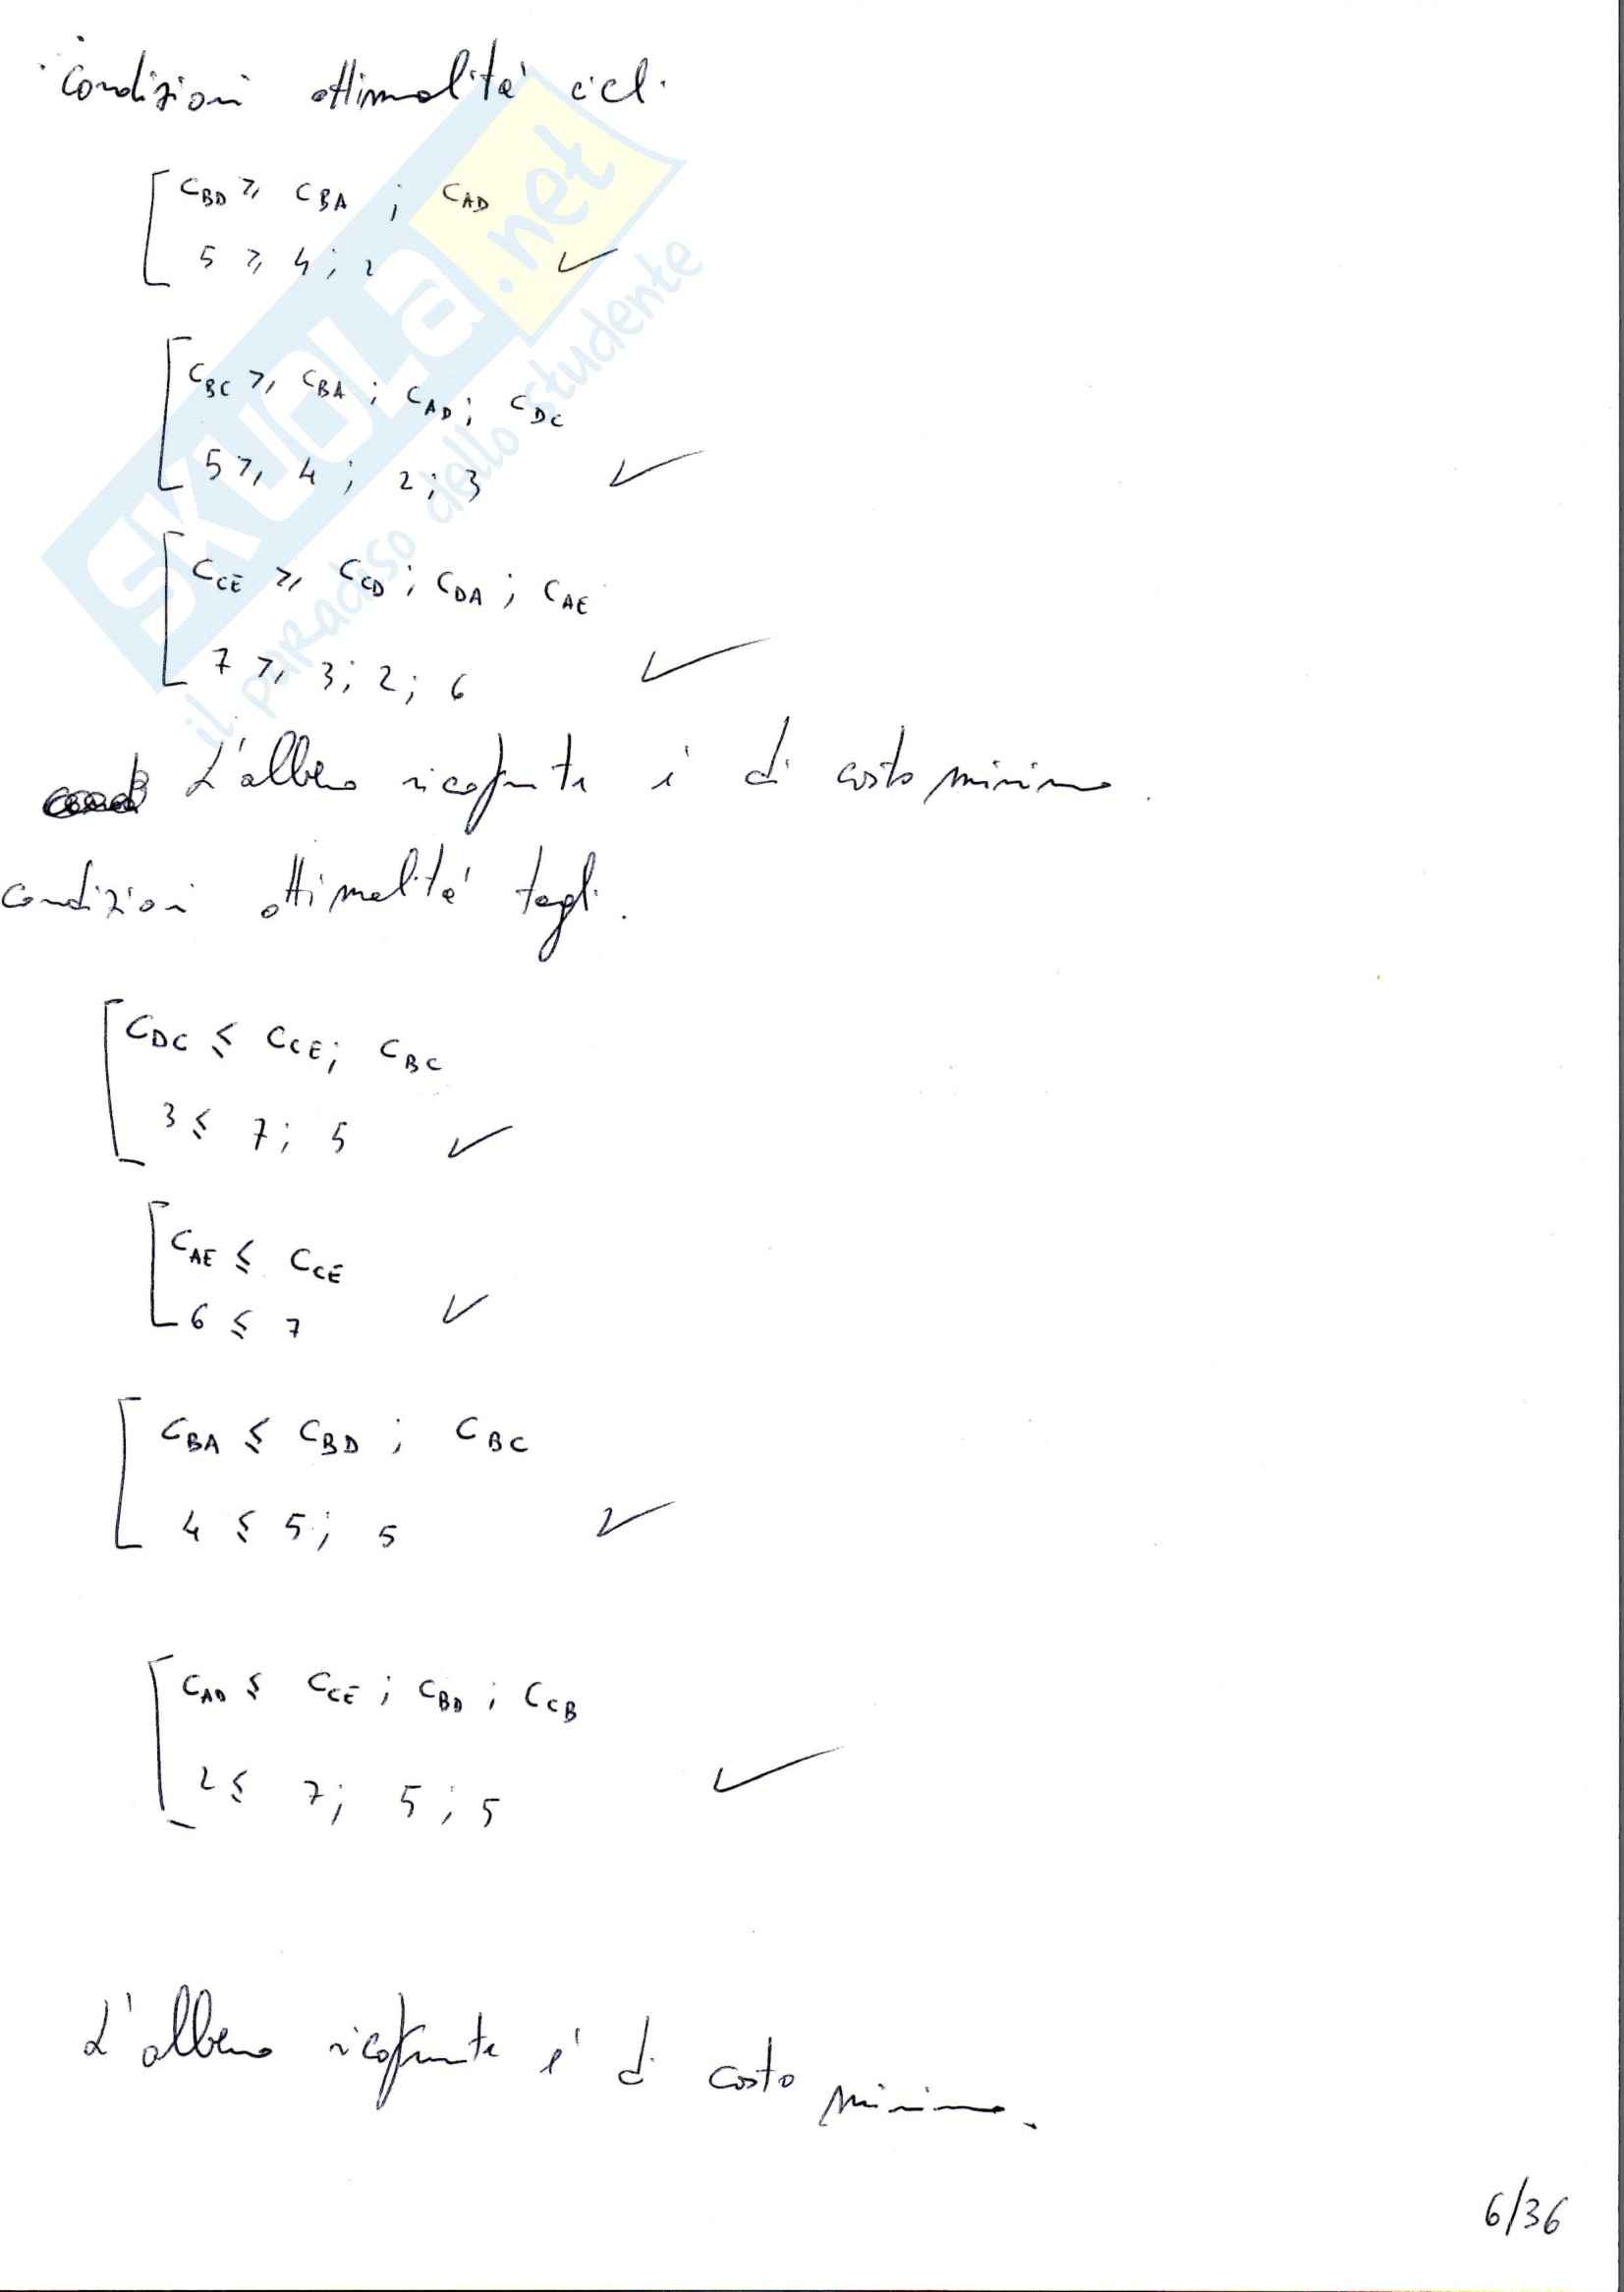 Condizioni ottimalità cicli
C_BD ≥ C_BA ; C_AD
5 ≥ 4 ; 2 ✓
C_BC ≥ C_BA ; C_AD ; C_DC
5 ≥ 4 ; 2 ; 3 ✓
C_CE ≥ C_CD ; C_DA ; C_AE
7 ≥ 3 ; 2 ; 6 ✓
L'albero ricoprente è di costo minimo.
Condizioni ottimalità tagli.
C_DC ≤ C_CE ; C_BC
3 ≤ 7 ; 5 ✓
C_AE ≤ C_CE
6 ≤ 7 ✓
C_BA ≤ C_BD ; C_BC
4 ≤ 5 ; 5 ✓
C_AD ≤ C_CE ; C_BD ; C_CB
2 ≤ 7 ; 5 ; 5 ✓
L'albero ricoprente è di costo minimo.
6/36
SKUOLA.net
il paradiso dello studente